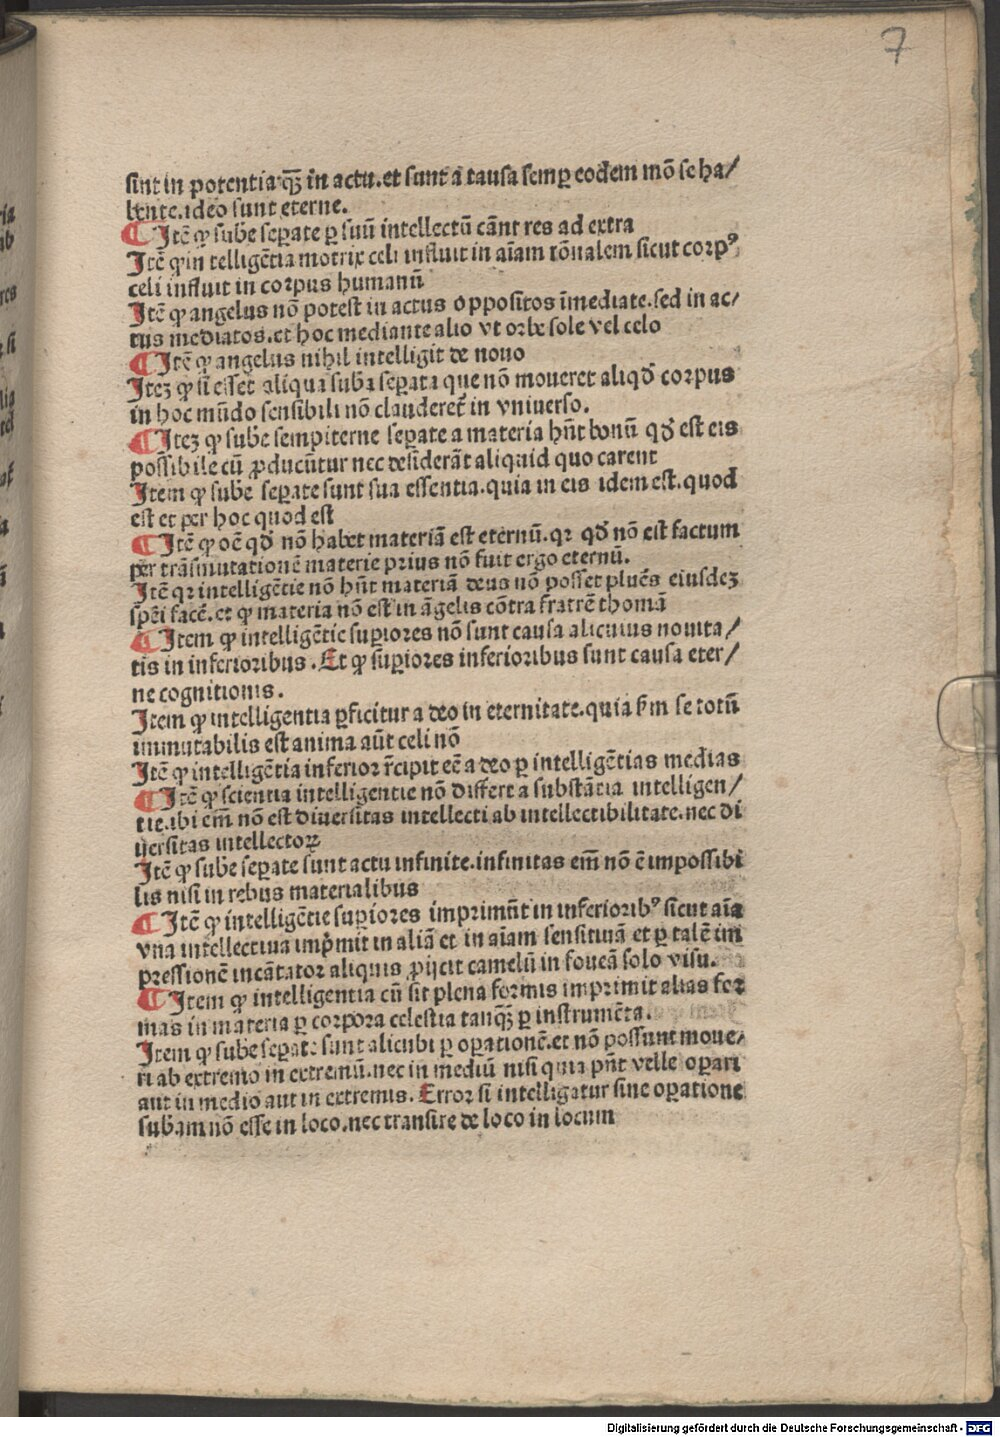 7
sint in potentia qȝ in actu.et sunt a causa semꝑ eodem mō se ha/
bente.ideo sunt eterne.
¶ Itē ꝙ sube seꝑate ꝑ suū intellectū cānt res ad extra
Itē ꝙ in telligētia motrix celi influit in aīam rōnalem sicut corpꝰ
celi influit in corpus humanū
Itē ꝙ angelus nō potest in actus oppositos īmediate.sed in ac/
tus mediatos.et hoc mediante alio vt orbe sole vel celo
¶ Itē ꝙ angelus nihil intelligit de nouo
Iteȝ ꝙ si esset aliqua suba seꝑata que nō moueret aliqđ corpus
in hoc mūdo sensibili nō clauderet̄ in vniuerso.
¶ Iteȝ ꝙ sube sempiterne seꝑate a materia hn̄t bonū qđ est eis
possibile cū ꝓducūtur nec desiderāt aliquid quo carent
Item ꝙ sube seꝑate sunt sua essentia.quia in eis idem est.quod
est et per hoc quod est
¶ Itē ꝙ oē qđ nō habet materiā est eternū.qꝛ qđ nō est factum
per trāsmutationē materie prius nō fuit ergo eternū.
Itē qꝛ intelligētie nō hn̄t materiā deus nō posset plues̄ eiusdeȝ
sp̄ei facē.et ꝙ materia nō est in āgelis cōtra fratrē thomā
¶ Item ꝙ intelligētie suꝑiores nō sunt causa alicuius nouita/
tis in inferioribus.Et ꝙ suꝑiores inferioribus sunt causa eter/
ne cognitionis.
Item ꝙ intelligentia ꝑficitur a deo in eternitate.quia ẜm se totū
immutabilis est anima aūt celi nō
Itē ꝙ intelligētia inferior r̄cipit eē a deo ꝑ intelligētias medias
¶ Itē ꝙ scientia intelligentie nō differt a substātia intelligen/
tie.ibi em̄ nō est diuersitas intellecti ab intellectibilitate.nec di
uersitas intellectoꝝ
Itē ꝙ sube seꝑate sunt actu infinite.infinitas em̄ nō ē impossibi
lis nisi in rebus materialibus
¶ Itē ꝙ intelligētie suꝑiores imprimūt in inferioribꝰ sicut aīa
vna intellectiua imp̄mit in aliā et in aīam sensitiuā et ꝑ talē im
pressionē incātator aliquis ꝓijcit camelū in foueā solo visu.
¶ Item ꝙ intelligentia cū sit plena formis imprimit alias for
mas in materia ꝑ corpora celestia tanqȝ ꝑ instrumēta.
Item ꝙ sube seꝑate sunt alicubi ꝑ oꝑationē.et nō possunt moue/
ri ab extremo in extremū.nec in mediū nisi quia pn̄t velle oꝑari
aut in medio aut in extremis. Error si intelligatur sine oꝑatione
subam nō esse in loco.nec transire de loco in locum
Digitalisierung gefördert durch die Deutsche Forschungsgemeinschaft - DFG